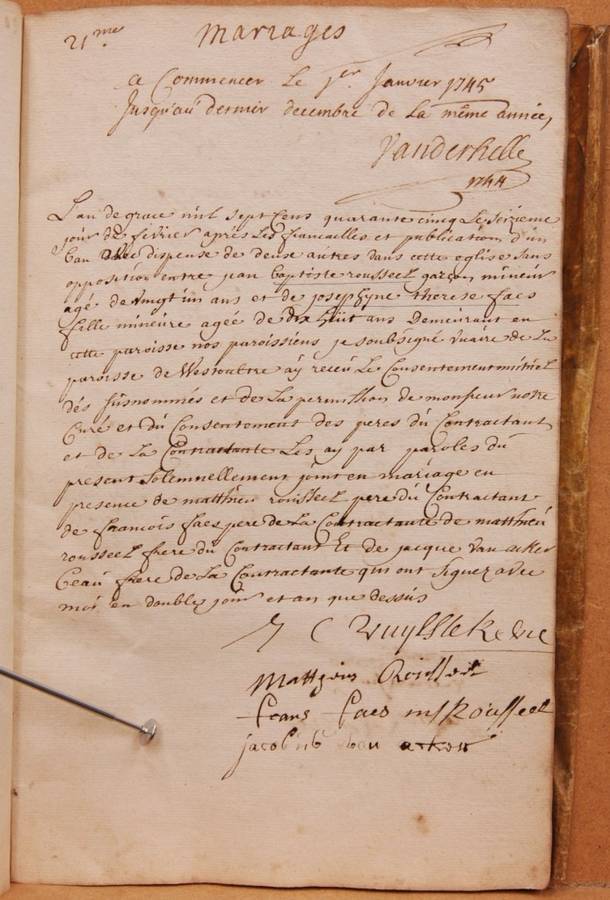 21me
mariages
a Commencer Le 1er Janvier 1745
Jusqu'au dernier decembre de La même année,
Vanderhelle
1744
L'an de grace mil sept Cens quarante cinq Le seizieme
jour de fevrier après Les fiancailles et publication d'un
ban avec dispense de deux autres dans cette eglise sans
opposition entre jean baptiste roussel garçon mineur
agé de vingt un ans et de josephyne therese faes
fille mineure ageé de dix huit ans Demeurant en
cette paroisse nos paroissiens je soubsigné vicaire de La
paroisse de Westoutre ay receu Le Consentement mutuel
des susnommés et de La permission de monsieur notre
Cure et du Consentement des peres du Contractant
et de La Contractante Les ay par paroles du
present solemnellement joint en mariage en
presence de matthieu roussel pere du Contractant
de francois faes pere de La Contractante de matthieu
roussel frere du Contractant Et de jacque van acker
beau frere de La Contractante qui ont signez avec
moi en double jour et an que dessus
C Vuylsteke vic
Frans faes